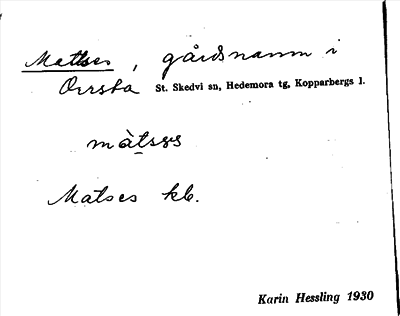 Matses, gårdsnamn i
Orrsta St. Skedvi sn, Hedemora tg, Kopparbergs l.
màtsɛs
Matses kb.
Karin Hessling 1930